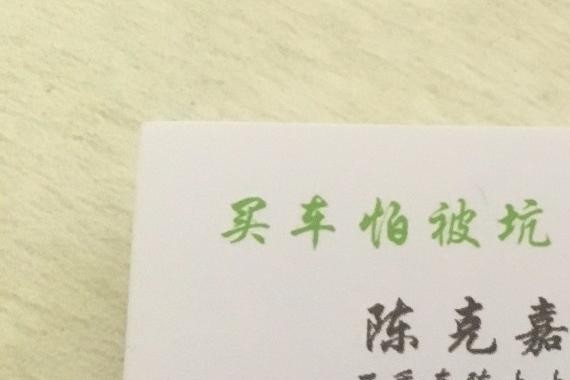 买车怕被坑
陈克嘉